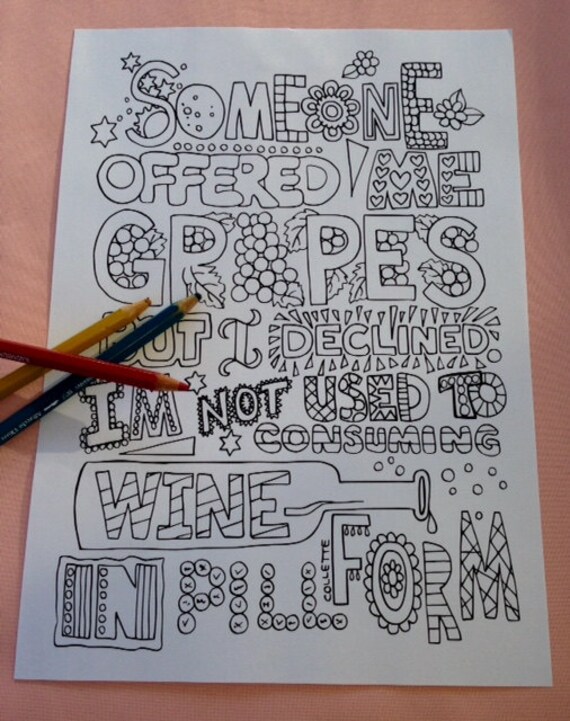 SOMEONE
OFFERED ME
GRAPES
BUT I DECLINED.
I'M NOT USED TO
CONSUMING
WINE
IN PILL FORM
COLLETTE